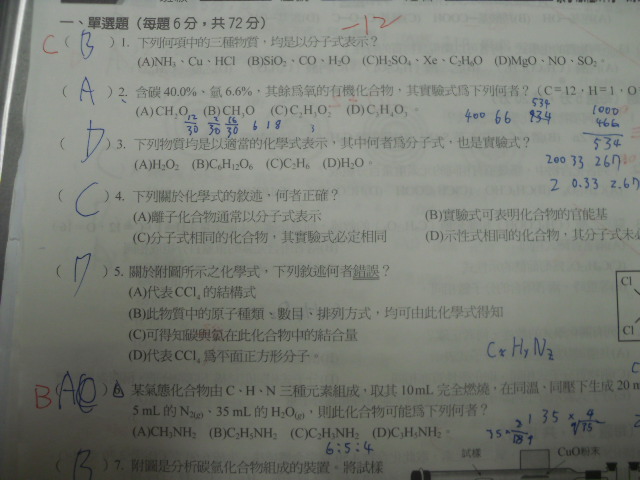 一、單選題（每題6分，共72分） -12
C（B）1. 下列何項中的三種物質，均是以分子式表示？
(A)NH₃、Cu、HCl (B)SiO₂、CO、H₂O (C)H₂SO₄、Xe、C₂H₆O (D)MgO、NO、SO₂。
（A）2. 含碳40.0%、氫6.6%，其餘爲氧的有機化合物，其實驗式爲下列何者？（C＝12，H＝1，O
(A)CH₂O (B)CH₃O (C)C₂H₃O₂ (D)C₃H₄O₃。
400 66 534
1000
466
534
12/30 2/30 16/30 6 18
（D）3. 下列物質均是以適當的化學式表示，其中何者爲分子式，也是實驗式？
200 33 267
(A)H₂O₂ (B)C₆H₁₂O₆ (C)C₂H₆ (D)H₂O。
2 0.33 2.67
（C）4. 下列關於化學式的敘述，何者正確？
(A)離子化合物通常以分子式表示 (B)實驗式可表明化合物的官能基
(C)分子式相同的化合物，其實驗式必定相同 (D)示性式相同的化合物，其分子式未必
（D）5. 關於附圖所示之化學式，下列敘述何者錯誤？
(A)代表CCl₄的結構式
Cl
(B)此物質中的原子種類、數目、排列方式，均可由此化學式得知
(C)可得知碳與氯在此化合物中的結合量
Cl
(D)代表CCl₄爲平面正方形分子。
CxHyNz
B 某氣態化合物由C、H、N三種元素組成，取其10mL完全燃燒，在同溫、同壓下生成20 m
5 mL的N₂(g)、35 mL的H₂O(g)，則此化合物可能爲下列何者？
(A)CH₃NH₂ (B)C₂H₅NH₂ (C)C₂H₃NH₂ (D)C₃H₅NH₂。
6:5:4
（B）7. 附圖是分析碳氫化合物組成的裝置。將試樣
試樣 CuO粉末